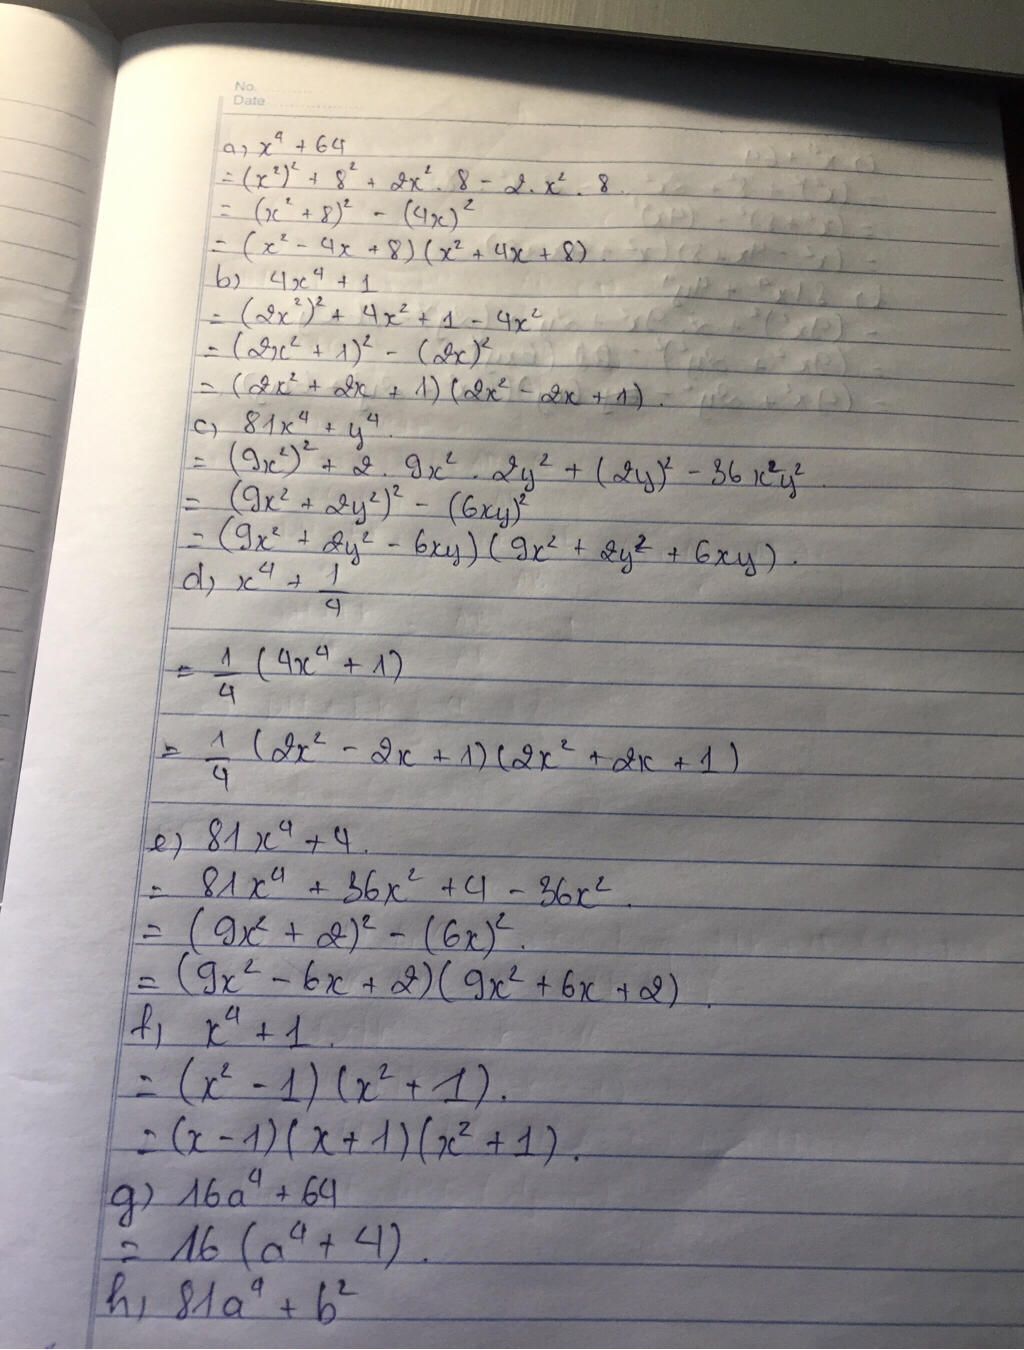 No.
Date
a, x⁴ + 64
= (x²)² + 8² + 2x² . 8 - 2. x² . 8.
= (x² + 8)² - (4x)²
= (x² - 4x + 8)(x² + 4x + 8)
b) 4x⁴ + 1
= (2x²)² + 4x² + 1 - 4x²
= (2x² + 1)² - (2x)²
= (2x² + 2x + 1)(2x² - 2x + 1).
c) 81x⁴ + y⁴.
= (9x²)² + 2. 9x² . 2y² + (2y)² - 36x²y².
= (9x² + 2y²)² - (6xy)²
= (9x² + 2y² - 6xy)(9x² + 2y² + 6xy).
d) x⁴ + 1/4
= 1/4 (4x⁴ + 1)
= 1/4 (2x² - 2x + 1)(2x² + 2x + 1)
e) 81x⁴ + 4.
= 81x⁴ + 36x² + 4 - 36x².
= (9x² + 2)² - (6x)².
= (9x² - 6x + 2)(9x² + 6x + 2).
f, x⁴ + 1.
= (x² - 1)(x² + 1).
= (x - 1)(x + 1)(x² + 1).
g) 16a⁴ + 64
= 16 (a⁴ + 4).
h, 81a⁴ + b²